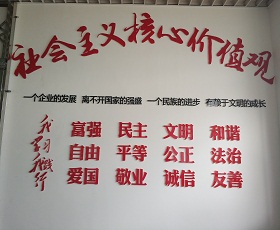 社会主义核心价值观
一个企业的发展 离不开国家的强盛 一个民族的进步 有赖于文明的成长
我学习我践行
富强 民主 文明 和谐
自由 平等 公正 法治
爱国 敬业 诚信 友善